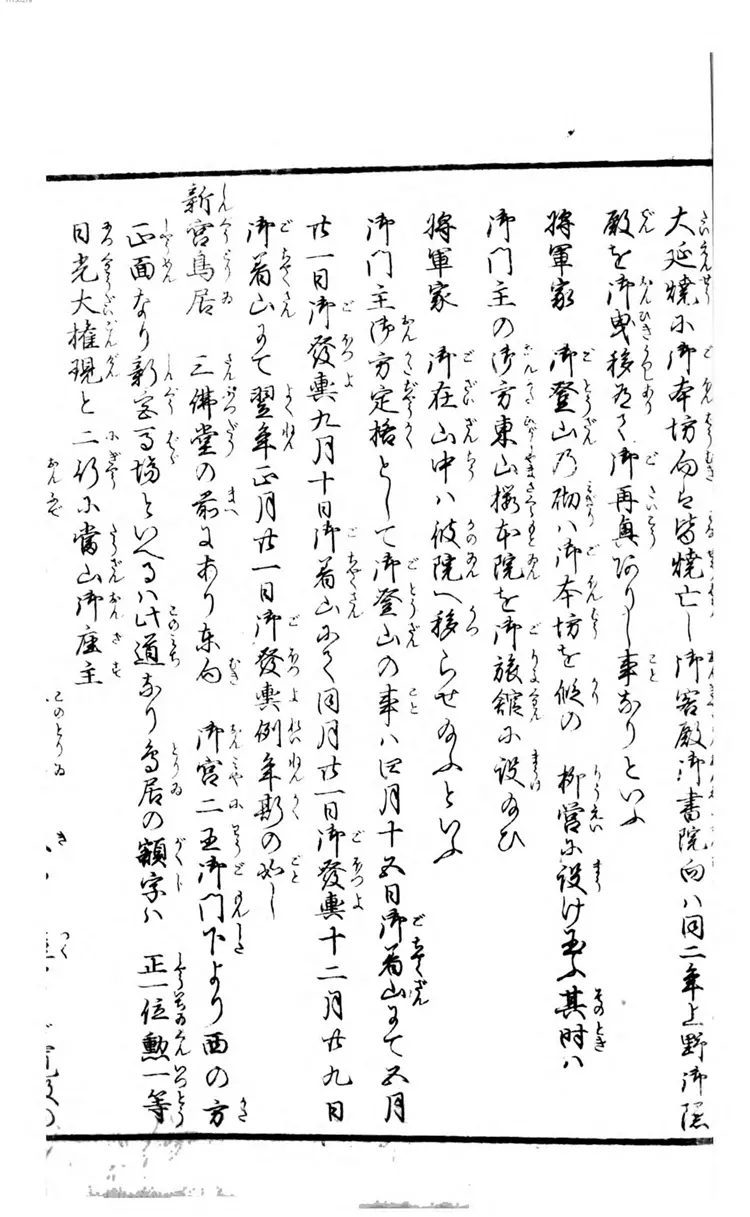 大延焼に御本坊向は皆焼亡し御客殿御書院向ハ同二年上野御隠
殿を御曳移ありて御再興ありし事なりといふ
将軍家 御登山乃砌ハ御本坊を假の 柳営に設け玉ふ其時ハ
御門主の御方東山櫻本院を御旅館に設給ひ
将軍家 御在山中ハ彼院へ移らせ給ふといふ
御門主御方定格として御登山の事ハ四月十五日御着山にて五月
廿一日御發輿九月十日御着山にて同月廿一日御發輿十二月廿九日
御着山にて翌年正月廿一日御發輿例年斯の如し
新宮鳥居 三佛堂の前にあり東向 御宮二王御門下より西の方
正面なり新宮馬場といへるハ此道なり鳥居の額字ハ 正一位勲一等
日光大権現と二行に當山御座主